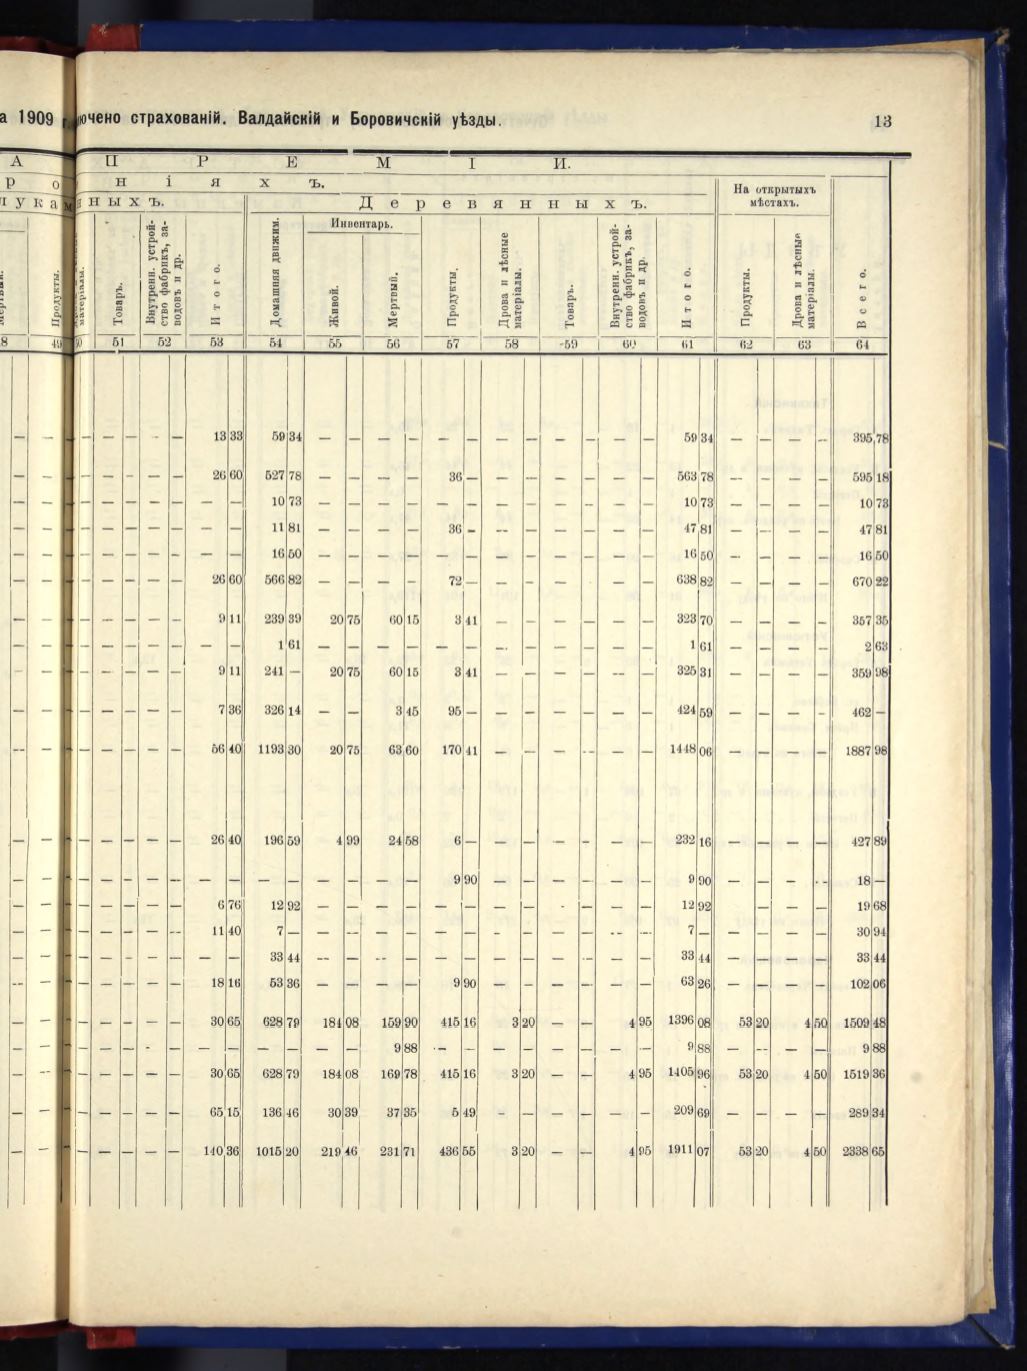 а 1909 г. ючено страхованій. Валдайскій и Боровичскій уѣзды. 13
А П Р Е М І И.
р о н і я х ъ.
л у к а м н н ы х ъ. Д е р е в я н н ы х ъ. На открытыхъ мѣстахъ.
Инвентарь.
Продукты. матеріалы. Товаръ. Внутренн. устрой-ство фабрикъ, за-водовъ и др. Итого. Домашняя движим. Живой. Мертвый. Продукты. Дрова и лѣсные матеріалы. Товаръ. Внутренн. устрой-ство фабрикъ, за-водовъ и др. Итого. Продукты. Дрова и лѣсные матеріалы. Всего.
8 49 50 51 52 53 54 55 56 57 58 59 60 61 62 63 64
— — — — — — — 13 33 59 34 — — — — — — — — — — — — 59 34 — — — — 395 78
— — — — — — — 26 60 527 78 — — — — 36 — — — — — — — 563 78 — — — — 595 18
— — — — — — — — — 10 73 — — — — — — — — — — — — 10 73 — — — — 10 73
— — — — — — — — — 11 81 — — — — 36 — — — — — — — 47 81 — — — — 47 81
— — — — — — — — — 16 50 — — — — — — — — — — — — 16 50 — — — — 16 50
— — — — — — — 26 60 566 82 — — — — 72 — — — — — — — 638 82 — — — — 670 22
— — — — — — — 9 11 239 39 20 75 60 15 3 41 — — — — — — 323 70 — — — — 357 35
— — — — — — — — — 1 61 — — — — — — — — — — — — 1 61 — — — — 2 63
— — — — — — — 9 11 241 — 20 75 60 15 3 41 — — — — — — 325 31 — — — — 359 98
— — — — — — — 7 36 326 14 — — 3 45 95 — — — — — — — 424 59 — — — — 462 —
— — — — — — — 56 40 1193 30 20 75 63 60 170 41 — — — — — — 1448 06 — — — — 1887 98
— — — — — — — 26 40 196 59 4 99 24 58 6 — — — — — — — 232 16 — — — — 427 89
— — — — — — — — — — — — — — — 9 90 — — — — — — 9 90 — — — — 18 —
— — — — — — — 6 76 12 92 — — — — — — — — — — — — 12 92 — — — 19 68
— — — — — — — 11 40 7 — — — — — — — — — — — — — 7 — — — — — 30 94
— — — — — — — — — 33 44 — — — — — — — — — — — — 33 44 — — — — 33 44
— — — — — — — 18 16 53 36 — — — — 9 90 — — — — — — 63 26 — — — — 102 06
— — — — — — — 30 65 628 79 184 08 159 90 415 16 3 20 — — 4 95 1396 08 53 20 4 50 1509 48
— — — — — — — — — — — — — 9 88 — — — — — — — — 9 88 — — — — 9 88
— — — — — — — 30 65 628 79 184 08 169 78 415 16 3 20 — — 4 95 1405 96 53 20 4 50 1519 36
— — — — — — — 65 15 136 46 30 39 37 35 5 49 — — — — — — 209 69 — — — — 289 34
— — — — — — — 140 36 1015 20 219 46 231 71 436 55 3 20 — — 4 95 1911 07 53 20 4 50 2338 65